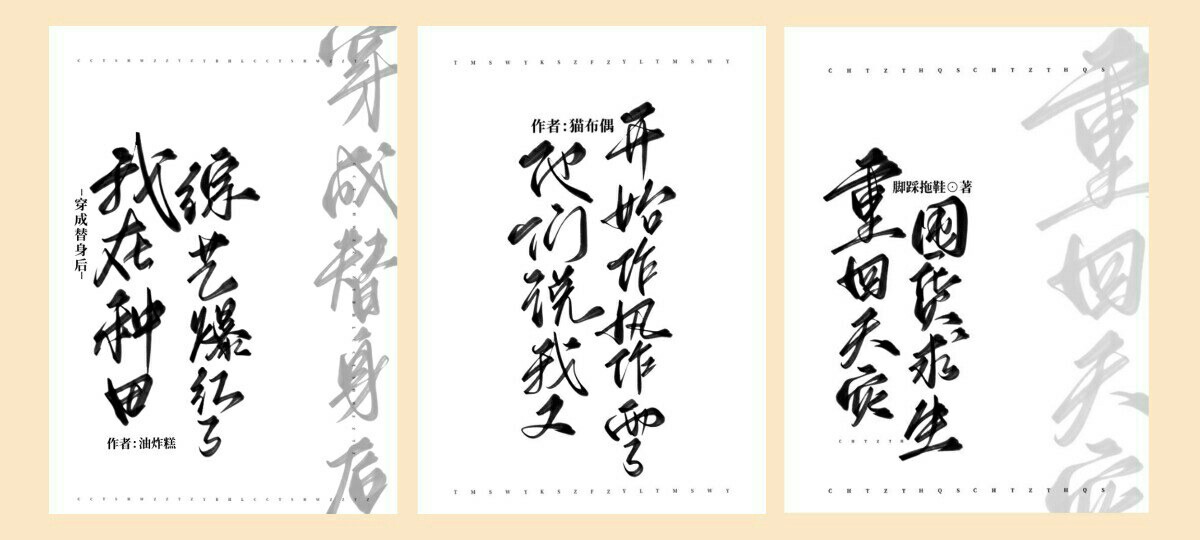 穿成替身后
-穿成替身后-
我在种田
综艺爆红了
作者:油炸糕
T M S W Y K S Z F Z Y L T M S W Y
作者:猫布偶
他们说我又
开始作
作
了
T M S W Y K S Z F Z Y L T M S W Y
C H T Z T H Q S C H T Z T H Q S
重回天灾
脚踩拖鞋⊙著
重回天灾
囤货求生
C H T Z T H
C H T Z T H Q S C H T Z T H Q S